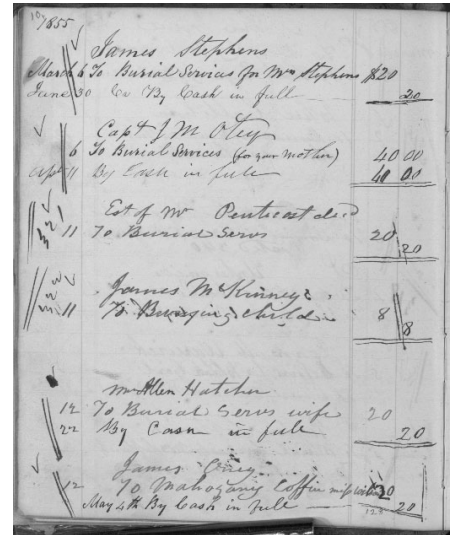 1855
James Stephens
March 6 To Burial Services for Mrs Stephens $20
June 30 Cr By Cash in full 20
Capt J M Otey
6 To Burial Services (for your mother) 40 00
11 By Cash in full 40 00
Est of Mr Pentecost decd
11 To Burial Servs 20 20
James McKinney
11 To Burying child 8 8
Mr Allen Hatcher
12 To Burial Servs wife 20
22 By Cash in full 20
James
12 To Mahogany Coffin
May 4th By Cash in full 20